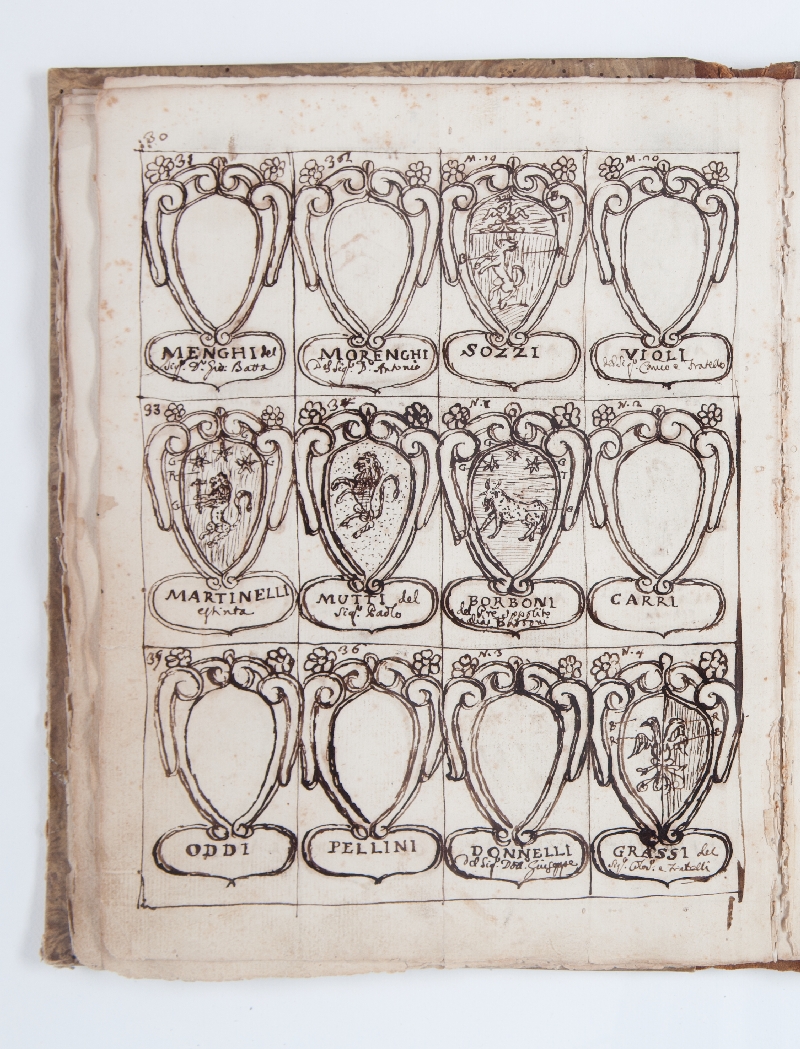 380
MENGHI del
Sigr. Dr. Gio: Batta
MORENGHI
del Sigr. Dr. Antonio
M. 19
SOZZI
M. 20
VIOLI
del Sigr. Canco e Fratello
33
MARTINELLI
estinta
34
MUTTI del
Sigr. Paolo
N. 1
BORBONI
N. 2
CARRI
35
ODDI
36
PELLINI
N. 3
DONNELLI
del Sigr. Dott. Giuseppe
N. 4
GRASSI del
Sigr. e Fratelli